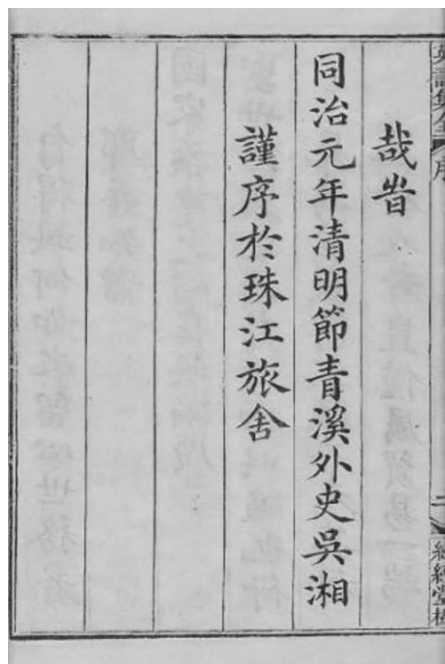 哉旹
同治元年清明節青溪外史吳湘
謹序於珠江旅舍